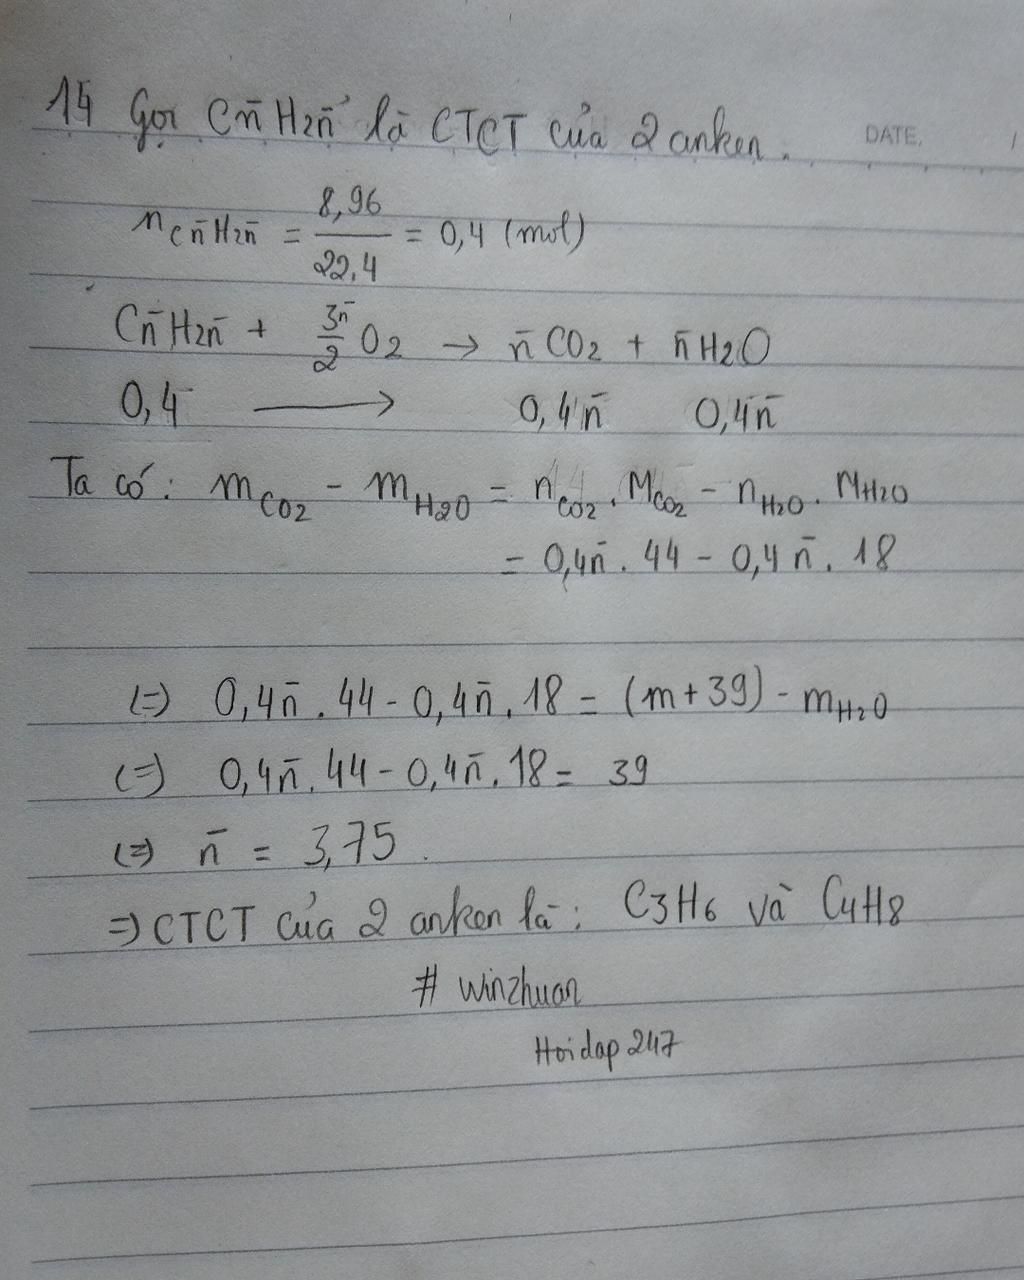 14 Gọi Cn̄H2n̄ là CTCT của 2 anken.
DATE. /
nCn̄H2n̄ = 8,96/22,4 = 0,4 (mol)
Cn̄H2n̄ + 3n̄/2 O2 → n̄ CO2 + n̄ H2O
0,4 → 0,4n̄ 0,4n̄
Ta có: mCO2 - mH2O = nCO2 . MCO2 - nH2O . MH2O
= 0,4n̄ . 44 - 0,4n̄ . 18
(=) 0,4n̄ . 44 - 0,4n̄ . 18 = (m + 39) - mH2O
(=) 0,4n̄ . 44 - 0,4n̄ . 18 = 39
(=) n̄ = 3,75.
=) CTCT của 2 anken là: C3H6 và C4H8
# winzhuan
Hoidap247